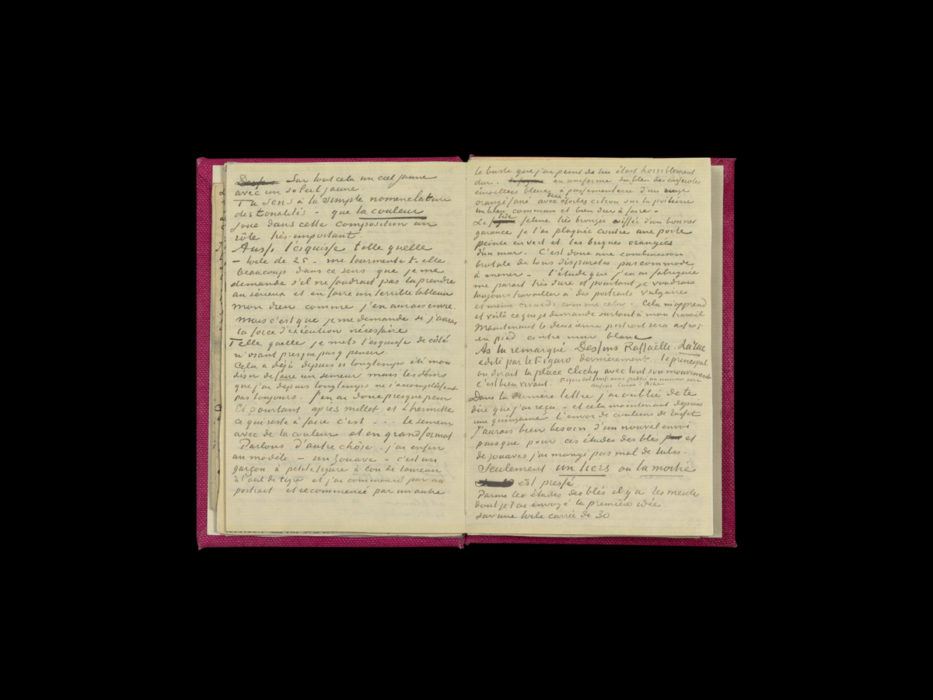 Dessus Sur tout cela un ciel jaune
avec un soleil jaune.
Tu sens à la simple nomenclature
des tonalités – que la couleur
joue dans cette composition un
rôle très important.
Aussi l'esquisse telle quelle
– toile de 25 – me tourmente t-elle
beaucoup dans ce sens que je me
demande s'il ne faudrait pas la prendre
au serieux et en faire un terrible tableau
mon dieu comme j'en aurais envie
mais c'est que je me demande si j'aurai
la force d'exécution nécessaire
Telle quelle je mets l'esquisse de côté
n'osant presque pas y penser
Cela a déjà depuis si longtemps été mon
désir de faire un semeur mais les désirs
que j'ai depuis longtemps ne s'accomplissent
pas toujours. J'en ai donc presque peur
Et pourtant après Millet et Lhermitte
ce qui reste à faire c'est . . . le semeur
avec de la couleur et en grand format
Parlons d'autre chôse – j'ai enfin
un modèle – un Zouave – c'est un
garçon à petite figure à cou de taureau
à l'œil de tigre et j'ai commencé par un
portrait et recommencé par un autre
le buste que j'ai peint de lui était horriblement
dur. en uniforme du bleu des casseroles
émaillées bleues à passementerie d'un rouge
orangé fané avec deux étoiles citron sur la poitrine
un bleu commun et bien dur à faire –
La tête féline très bronzée coiffée d'un bonnet
garance je l'ai plaquée contre une porte
peinte en vert et les briques orangées
d'un mur. C'est donc une combinaison
brutale de tons disparates pas commode
à mener – l'étude que j'en ai fabriquée
me parait très dure et pourtant je voudrais
toujours travailler à des portraits vulgaires
et même criards comme celui-là. Cela m'apprend
et voilà ce que je demande surtout à mon travail
Maintenant le deuxième portrait sera assis
en pied contre mur blanc
As tu remarqué Dessins Raffaëlli La rue
édité par le Figaro dernièrement. le principal
on dirait la place Clichy avec tout son mouvement
c'est bien vivant. Figaro doit
Dans la dernière lettre j'ai oublié de te
dire que j'ai reçu – et cela maintenant depuis
une quinzaine – l'envoi de couleurs de Tasset
J'aurais bien besoin d'un nouvel envoi
puisque pour ces études des blés et
de zouaves j'ai mangé pas mal de tubes.
Seulement un tiers ou la moitié
est pressé.
Parmi les études des blés il y a les meules
dont je t'ai envoyé la première idée
sur une toile carrée de 30